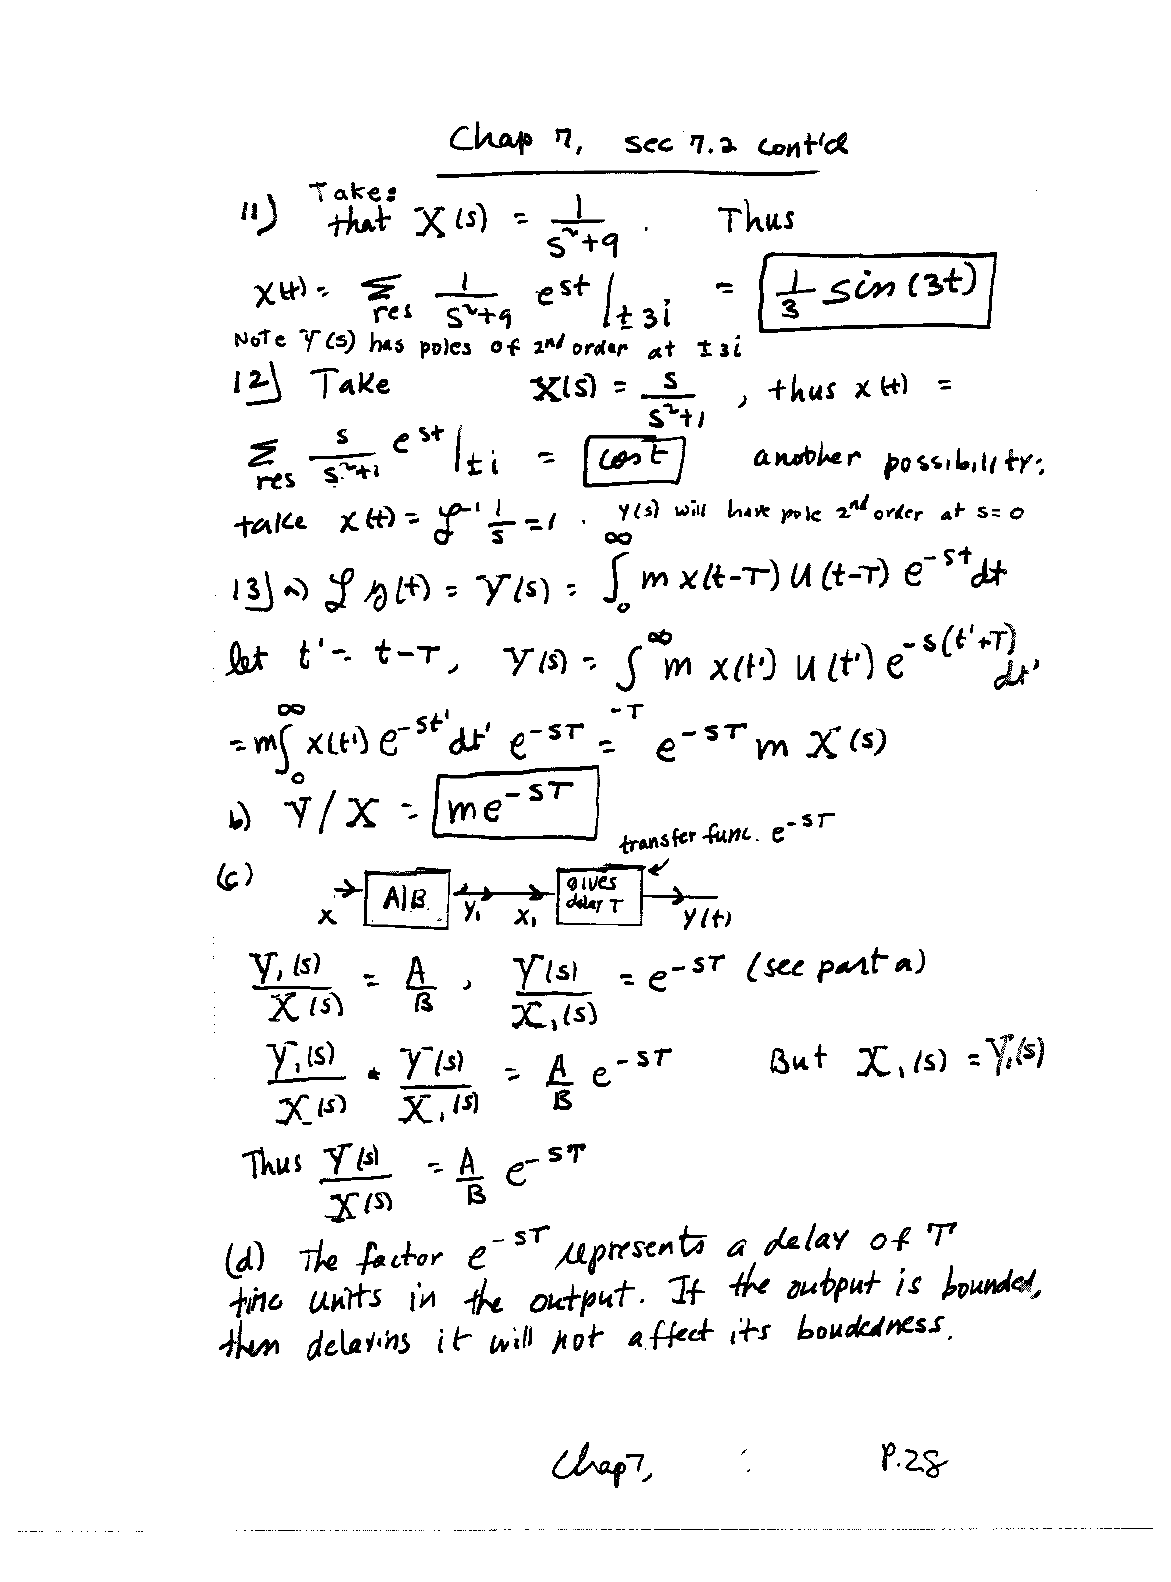 Chap 7, sec 7.2 cont'd
11) Take: that X(s) = 1/(s²+9). Thus
x(t) = Σ res 1/(s²+9) e^st |±3i = 1/3 sin(3t)
Note Y(s) has poles of 2nd order at ±3i
12) Take X(s) = s/(s²+1), thus x(t) =
Σ res s/(s²+1) e^st |±i = cos t another possibility:
take x(t) = ℒ^-1 1/s = 1. Y(s) will have pole 2nd order at s=0
13) a) ℒ y(t) = Y(s) = ∫_0^∞ m x(t-T) u(t-T) e^-st dt
let t' = t-T, Y(s) = ∫_-T^∞ m x(t') u(t') e^-s(t'+T) dt'
= m∫_0^∞ x(t') e^-st' dt' e^-sT = e^-sT m X(s)
b) Y/X = me^-sT
transfer func. e^-sT
(c) x A/B y₁ x₁ gives delay T y(t)
Y₁(s)/X(s) = A/B, Y(s)/X₁(s) = e^-sT (see part a)
Y₁(s)/X(s) • Y(s)/X₁(s) = A/B e^-sT But X₁(s) = Y₁(s)
Thus Y(s)/X(s) = A/B e^-sT
(d) The factor e^-sT represents a delay of T
time units in the output. If the output is bounded,
then delaying it will not affect its boudedness.
Chap 7, P.28